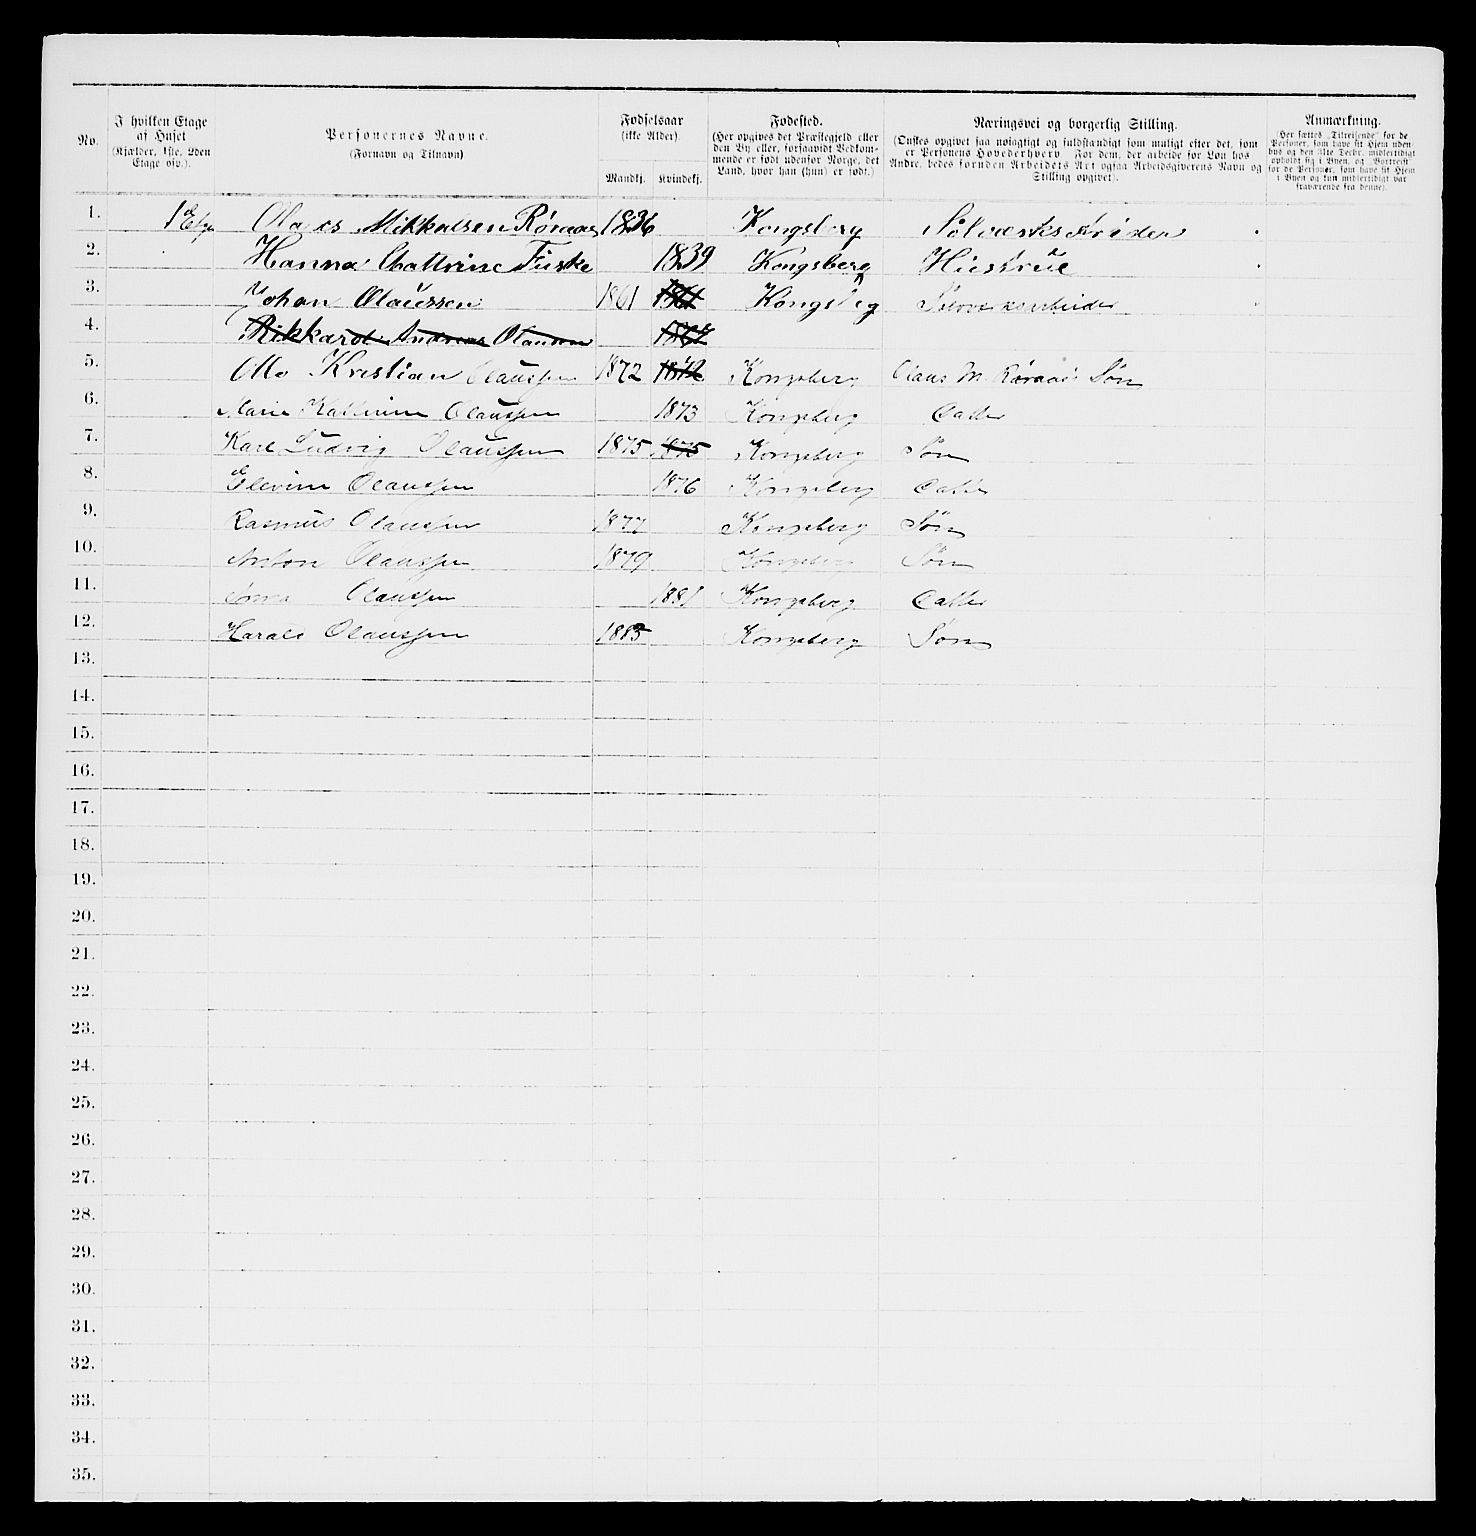 No.
I hvilken Etage af Huset (Kjælder, 1ste, 2den Etage osv.).
Personernes Navne. (Fornavn og Tilnavn)
Fødselsaar (ikke Alder).
Mandkj. Kvindekj.
Fødested. (Her opgives det Præstegjeld eller den By eller, forsaavidt Vedkommende er født udenfor Norge, det Land, hvor han (hun) er født.)
Næringsvei og borgerlig Stilling. (Ønskes opgivet saa nøiagtigt og fuldstændigt som muligt efter det, som er Personens Hovederhverv. For dem, der arbeide for Løn hos Andre, bedes foruden Arbeidets Art ogsaa Arbeidsgiverens Navn og Stilling opgivet).
Anmærkning. (Her sættes „Tilreisende“ for de Personer, som have sit Hjem udenbys og den 31te Decbr. midlertidigt opholdt sig i Byen, og „Bortreist“ for de Personer, som have sit Hjem i Byen og kun midlertidigt var fraværende fra denne).
1. 1 Etge Olaus Mikkalsen Røraas 1836 Kongsberg
2. Hanna Cattrine Fiiske 1839 Kongsberg Huistrue
3. Johan Olaussen 1861 1861 Kongsberg
4. Rikkard Andreas Olaussen
5. Otto Kristian Olaussen 1872 1872 Kongsberg Olaus M. Røraas Søn
6. Marie Kathrine Olaussen 1873 Kongsberg Datter
7. Karl Ludvig Olaussen 1875 1875 Kongsberg Søn
8. Elevine Olaussen 1876 Kongsberg Datter
9. Rasmus Olaussen 1877 Kongsberg Søn
10. Anton Olaussen 1879 Kongsberg Søn
11. Olaussen 1881 Kongsberg Datter
12. Harald Olaussen 1883 Kongsberg Søn
13.
14.
15.
16.
17.
18.
19.
20.
21.
22.
23.
24.
25.
26.
27.
28.
29.
30.
31.
32.
33.
34.
35.